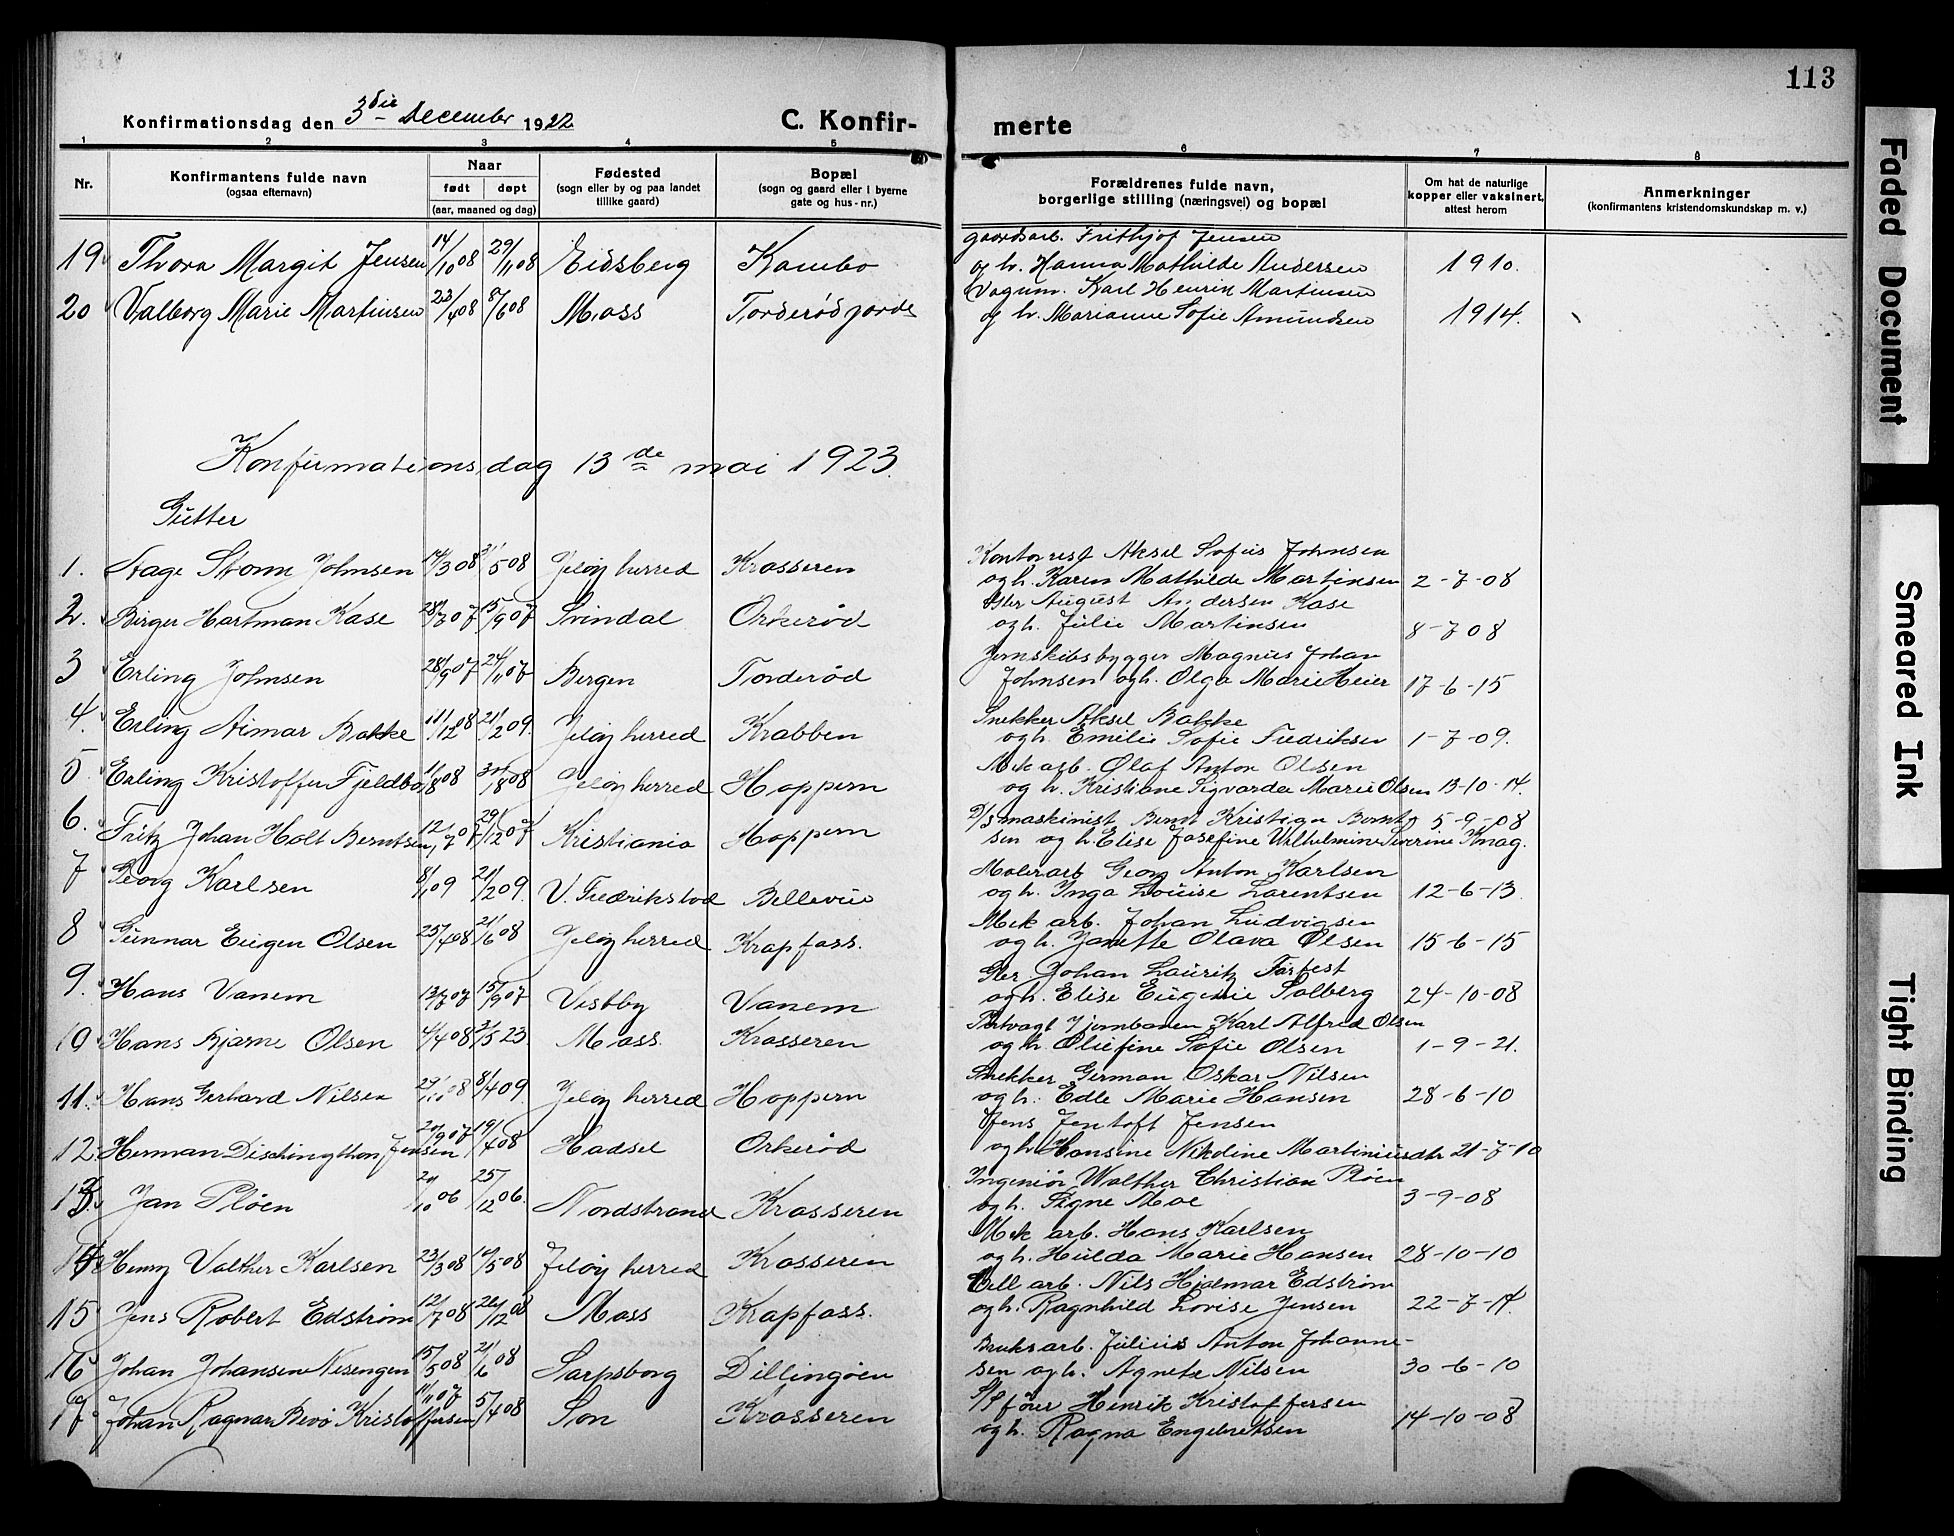 113
Konfirmationsdag den 3die December 1922
C. Konfir-
merte
1 2 3 4 5 6 7 8
Nr.
Konfirmantens fulde navn
(ogsaa efternavn)
Naar
født døpt
(aar, maaned og dag)
Fødested
(sogn eller by og paa landet
tillike gaard)
Bopæl
(sogn og gaard eller i byerne
gate og hus-nr.)
Forældrenes fulde navn,
borgerlige stilling (næringsvei) og bopæl
Om hat de naturlige
kopper eller vaksinert,
attest herom
Anmerkninger
(konfirmantens kristendomskundskap m. v.)
gaardsarb. Frithjof Jensen
19 Thora Margit Jensen 14/10 08 29/11 08 Eidsberg Kambo og h. Hanna Mathilde Andersen 1910.
Vognm. Karl Henrik Martinsen
20 Valborg Marie Martinsen 23/4 08 8/6 08 Moss Torderødjorde og h. Marianne Sofie Amundsen 1914.
Konfirmationsdag 13de mai 1923.
Gutter
Kontorist Aksel Sofus Johnsen
1. Aage Storm Johnsen 14/3 08 31/5 08 Jeløy herred Krosseren og h. Karen Mathilde Martinsen 2-7-08
August Andersen Kase
2. Birger Hartman Kase 28/7 07 15/9 07 Svindal Orkerød og h. Julie Martinsen 8-7 08
Jernskibsbygger Magnus Johan
3 Erling Johnsen 28/9 07 24/11 07 Bergen Torderød Johnsen og h. Olga Marie Heier 17-6-15
Snekker Aksel Bakke
4. Erling Aimar Bakke 11/12 08 21/2 09. Jeløy herred Krabben og h. Emilie Sofie Fredriksen 1-7-09.
Mek arb. Olaf Anton Olsen
5 Erling Kristoffer Fjeldbo Jeløy herred Hoppern og h. Kristiane Sigvarda Marie Olsen 13-10-14.
D/S maskinist Bernt Kristian Bernt-
6. Fritz Johan Holt Berntsen 12/7 07 29/12 07 Kristiania Hoppern sen og h. Elise Josefine Wilhelmine Severine Knag. 5-9-08
Malerarb Georg Anton Karlsen
7 Georg Karlsen 8/1 09 21/2 09. V. Fredrikstad Bellevue og h. Inga Louise Larentsen 12-6-13.
Mek arb. Johan Ludvigsen
8 Gunnar Eugen Olsen 25/4 08 21/6 08 Jeløy herred Krapfoss. og h. Janette Olava Olsen 15-6-15
Johan Lauritz
9. Hans Vanem 13/7 07 15/9 07 Vestby Vanem og h. Elise Eugenie Solberg 24-10-08
Jernbanen Karl Alfred Olsen
10 Hans Bjarne Olsen 4/4 08 3/5 23 Moss. Krosseren og h. Oliefine Sofie Olsen 1-9-21.
Snekker German Oskar Nilsen
11. Hans Gerhard Nilsen 29/10 08 8/4 09. Jeløy herred Hoppern og h. Edle Marie Hansen 28-6-10
Jens Jentoft Jensen
12. Herman Dischingthon Jensen 19/4 08 Hadsel Orkerød og h. Hansine Nikoline Martiniusdtr 21-7-10
Ingeniör Walther Christian Pløen
13. Jan Pløen 25/12 06. Nordstrand Krosseren og h. Signe Moe 3-9-08
Mek arb. Hans Karlsen
14 Henry Valther Karlsen 23/3 08 Jeløy herred Krosseren og h. Hulda Marie Hansen 28-10-10
Cell arb. Nils Hjalmar Edstrøm
15 Jens Robert Edstrøm 12/7 08 26/12 08 Moss Krapfoss. og h. Ragnhild Lovise Jensen 22-7-14.
Bruksarb. Julius Anton Johanne-
16 Johan Johansen Nesengen 15/5 08 21/6 08 Sarpsborg Dillingøen sen og h. Agnete Nilsen 30-6-10
S/S fører Henrik Kristoffersen
17 Johan Ragnar Bevø Kristoffersen 11/11 07 5/4 08 Son Krosseren og h. Ragna Engebretsen 14-10-08
Faded Document
Smeared Ink
Tight Binding